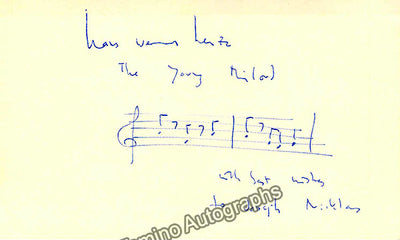 hans werner henze
The Young Milord
with best wishes
to
Tamino Autographs